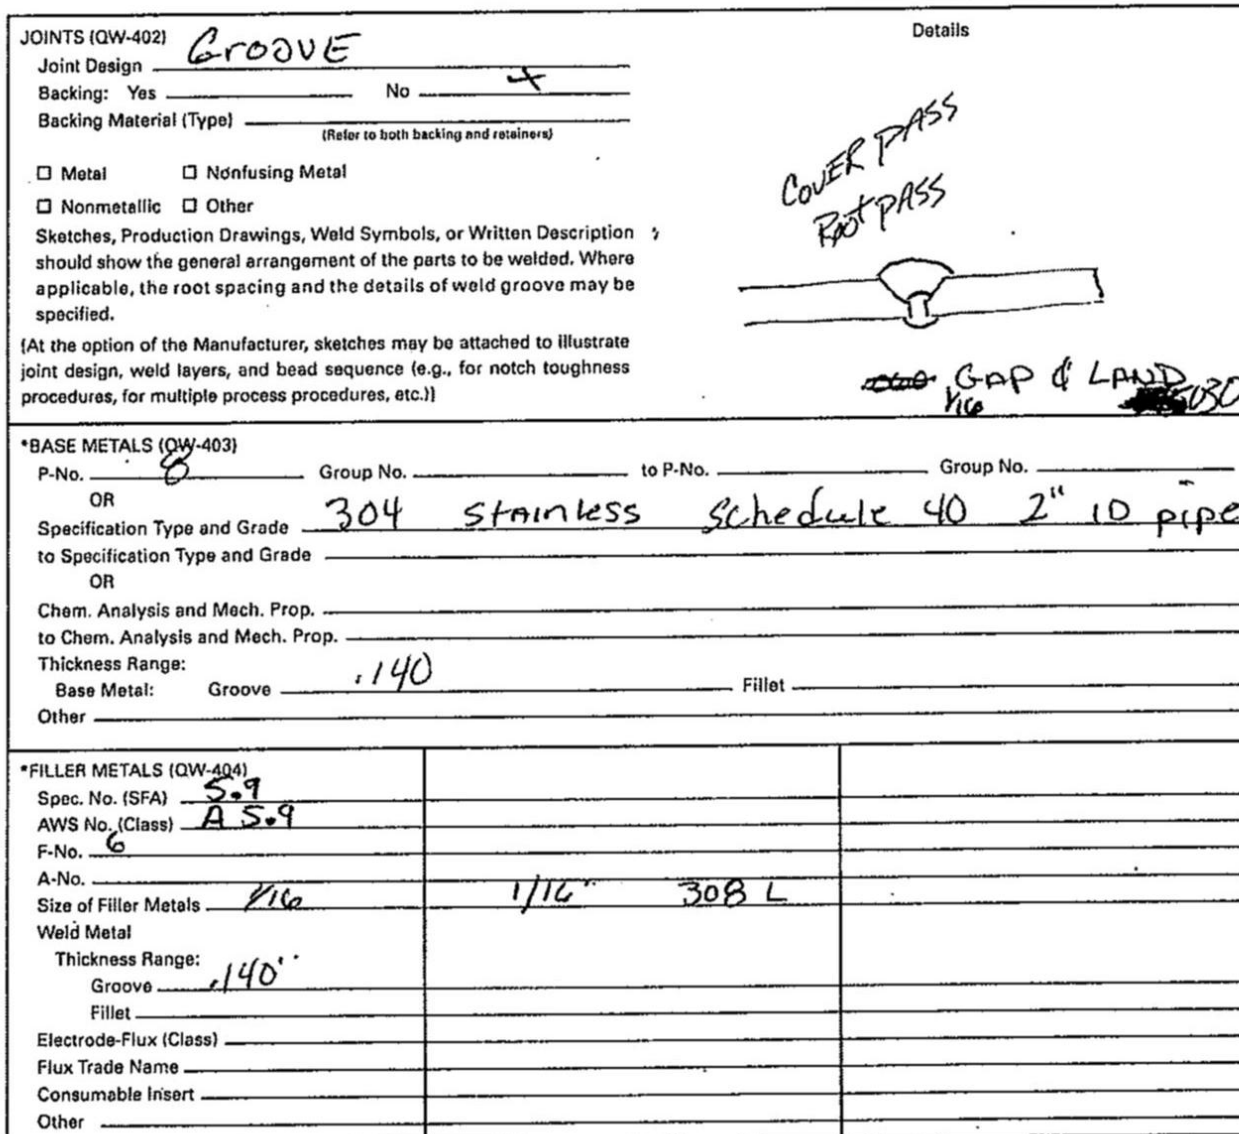 JOINTS (QW-402)
Details
Joint Design GrooVE
Backing: Yes No X
Backing Material (Type)
(Refer to both backing and retainers)
☐ Metal ☐ Nonfusing Metal
☐ Nonmetallic ☐ Other
Sketches, Production Drawings, Weld Symbols, or Written Description
should show the general arrangement of the parts to be welded. Where
applicable, the root spacing and the details of weld groove may be
specified.
(At the option of the Manufacturer, sketches may be attached to illustrate
joint design, weld layers, and bead sequence (e.g., for notch toughness
procedures, for multiple process procedures, etc.))
COVER PASS
Root PASS
GAP & LAND
1/16 030
*BASE METALS (QW-403)
P-No. 8 Group No. to P-No. Group No.
OR
Specification Type and Grade 304 Stainless Schedule 40 2" ID pipe
to Specification Type and Grade
OR
Chem. Analysis and Mech. Prop.
to Chem. Analysis and Mech. Prop.
Thickness Range:
Base Metal: Groove .140 Fillet
Other
*FILLER METALS (QW-404)
Spec. No. (SFA) 5.9
AWS No. (Class) A 5.9
F-No. 6
A-No.
Size of Filler Metals 1/16 1/16" 308 L
Weld Metal
Thickness Range:
Groove .140"
Fillet
Electrode-Flux (Class)
Flux Trade Name
Consumable Insert
Other